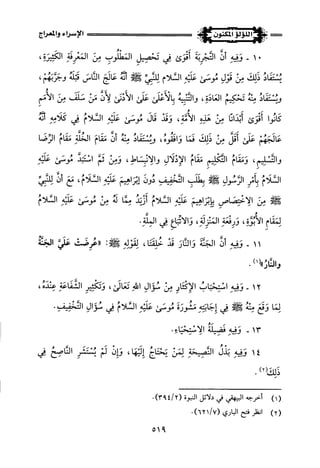 اللؤلؤ المكنون
الإسراء والمعراج
١٠ - وَفِيهِ أَنَّ التَّجْرِبَةَ أَقْوَى فِي تَحْصِيلِ المَطْلُوبِ مِنَ المَعْرِفَةِ الكَثِيرَةِ،
يُسْتَفَادُ ذَلِكَ مِنْ قَوْلِ مُوسَى عَلَيْهِ السَّلَام لِلنَّبِيِّ ﷺ أَنَّهُ عَالَجَ النَّاسَ قَبْلَهُ وَجَرَّبَهُمْ،
وَيُسْتَفَادُ مِنْهُ تَحْكِيمُ العَادَةِ، وَالتَّنْبِيهُ بِالْأَعْلَى عَلَى الأَدْنَى لِأَنَّ مَنْ سَلَفَ مِنَ الأُمَمِ
كَانُوا أَقْوَى أَبْدَانًا مِنْ هَذِهِ الأُمَّةِ، وَقَدْ قَالَ مُوسَى عَلَيْهِ السَّلَامُ فِي كَلَامِهِ أَنَّهُ
عَالَجَهُمْ عَلَى أَقَلَّ مِنْ ذَلِكَ فَمَا وَافَقُوهُ، وَيُسْتَفَادُ مِنْهُ أَنَّ مَقَامَ الخُلَّةِ مَقَامُ الرِّضَا
وَالتَّسْلِيمِ، وَمَقَامُ التَّكْلِيمِ مَقَامُ الإِدْلَالِ وَالِانْبِسَاطِ، وَمِنْ ثَمَّ اسْتَبَدَّ مُوسَى عَلَيْهِ
السَّلَامُ بِأَمْرِ الرَّسُولِ ﷺ بِطَلَبِ التَّخْفِيفِ دُونَ إِبْرَاهِيمَ عَلَيْهِ السَّلَامُ، مَعَ أَنَّ لِلنَّبِيِّ
ﷺ مِنَ الاخْتِصَاصِ بِإِبْرَاهِيمَ عَلَيْهِ السَّلَامُ أَزْيَدُ مِمَّا لَهُ مِنْ مُوسَى عَلَيْهِ السَّلَامُ
لِمَقَامِ الأُبُوَّةِ، وَرِفْعَةِ المَنْزِلَةِ، وَالاتِّبَاعِ فِي المِلَّةِ.
١١ - وَفِيهِ أَنَّ الجَنَّةَ وَالنَّارَ قَدْ خُلِقَتَا، لِقَوْلِهِ ﷺ: «عُرِضَتْ عَلَيَّ الجَنَّةُ
وَالنَّارُ»(١).
١٢ - وَفِيهِ اسْتِحْبَابُ الإِكْثَارِ مِنْ سُؤَالِ اللهِ تَعَالَى، وَتَكْثِيرِ الشَّفَاعَةِ عِنْدَهُ،
لِمَا وَقَعَ مِنْهُ ﷺ فِي إِجَابَتِهِ مَشُورَةَ مُوسَى عَلَيْهِ السَّلَامُ فِي سُؤَالِ التَّخْفِيفِ.
١٣ - وَفِيهِ فَضِيلَةُ الِاسْتِحْيَاءِ.
١٤ - وَفِيهِ بَذْلُ النَّصِيحَةِ لِمَنْ يَحْتَاجُ إِلَيْهَا، وَإِنْ لَمْ يَسْتَشِرِ النَّاصِحَ فِي
ذَلِكَ(٢).
(١) أخرجه البيهقي في دلائل النبوة (٣٩٤/٢).
(٢) انظر فتح الباري (٦٢١/٧).
٥١٩